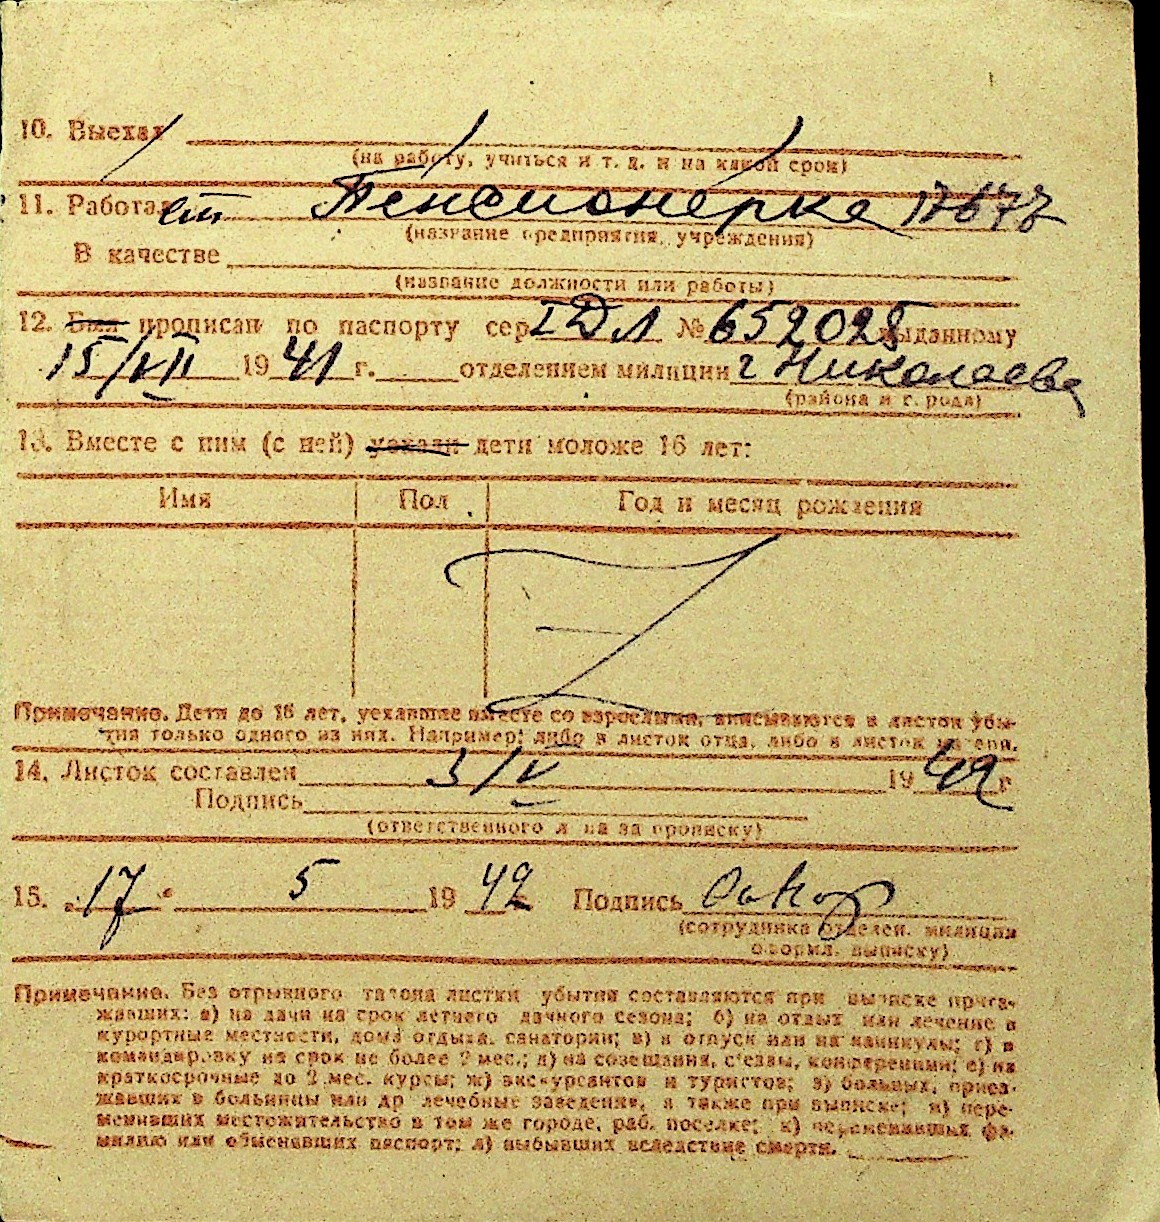 10. Выехал
(на работу, учиться и т. д. и на какой срок)
11. Работает Пенсионерка 17677
(название предприятия, учреждения)
В качестве
(название должности или работы)
12. Был прописан по паспорту сер. IДЛ № 652028 выданному
15/VII 1941 г. отделением милиции г Николаева
(района и города)
13. Вместе с ним (с ней) уехали дети моложе 16 лет:
Имя Пол Год и месяц рождения
Примечание. Дети до 16 лет, уехавшие вместе со взрослыми, вписываются в листок убы-
тия только одного из них. Например: либо в листок отца, либо в листок матери.
14. Листок составлен 3/V 1942 г
Подпись
(ответственного лица за прописку)
15. "17" 5 1942 г. Подпись
(сотрудника отделен. милиции
оформл. выписку)
Примечание. Без отрывного талона листки убытия составляются при выписке приез-
жавших: а) на дачи на срок летнего дачного сезона; б) на отдых или лечение в
курортные местности, дома отдыха, санатории; в) в отпуск или на каникулы; г) в
командировку на срок не более 2 мес.; д) на совещания, с'езды, конференции; е) на
краткосрочные до 2 мес. курсы; ж) экскурсантов и туристов; з) больных, приез-
жавших в больницы или др лечебные заведения, а также при выписке; и) пере-
менивших местожительство в том же городе, раб. поселке; к) переменивших фа-
милию или обменявших паспорт; л) выбывших вследствие смерти.